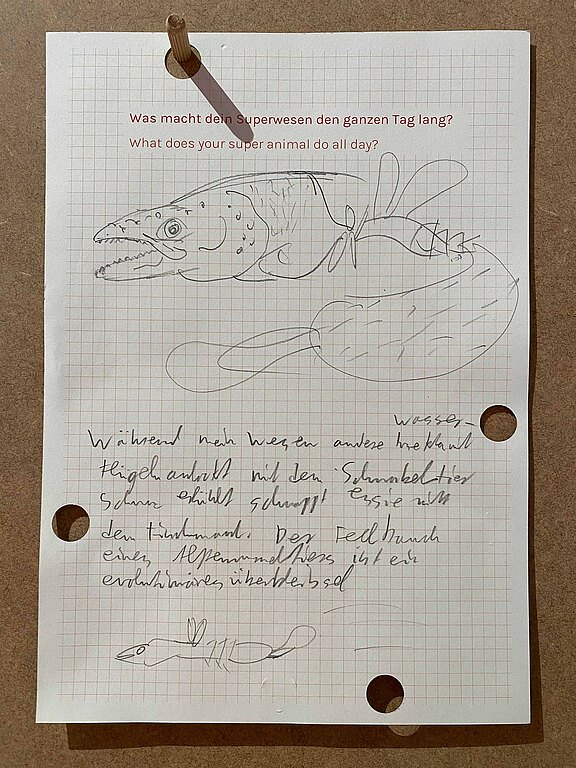 Was macht dein Superwesen den ganzen Tag lang?
What does your super animal do all day?
Wasser-
Während mein Wesen andere Insekten mit
Flügeln anlockt mit dem Schnabeltier
schnappt es sie mit
dem Fischmund. Der Fellbauch
eines Alpenmurmeltiers ist ein
evolutionäres überbleibsel